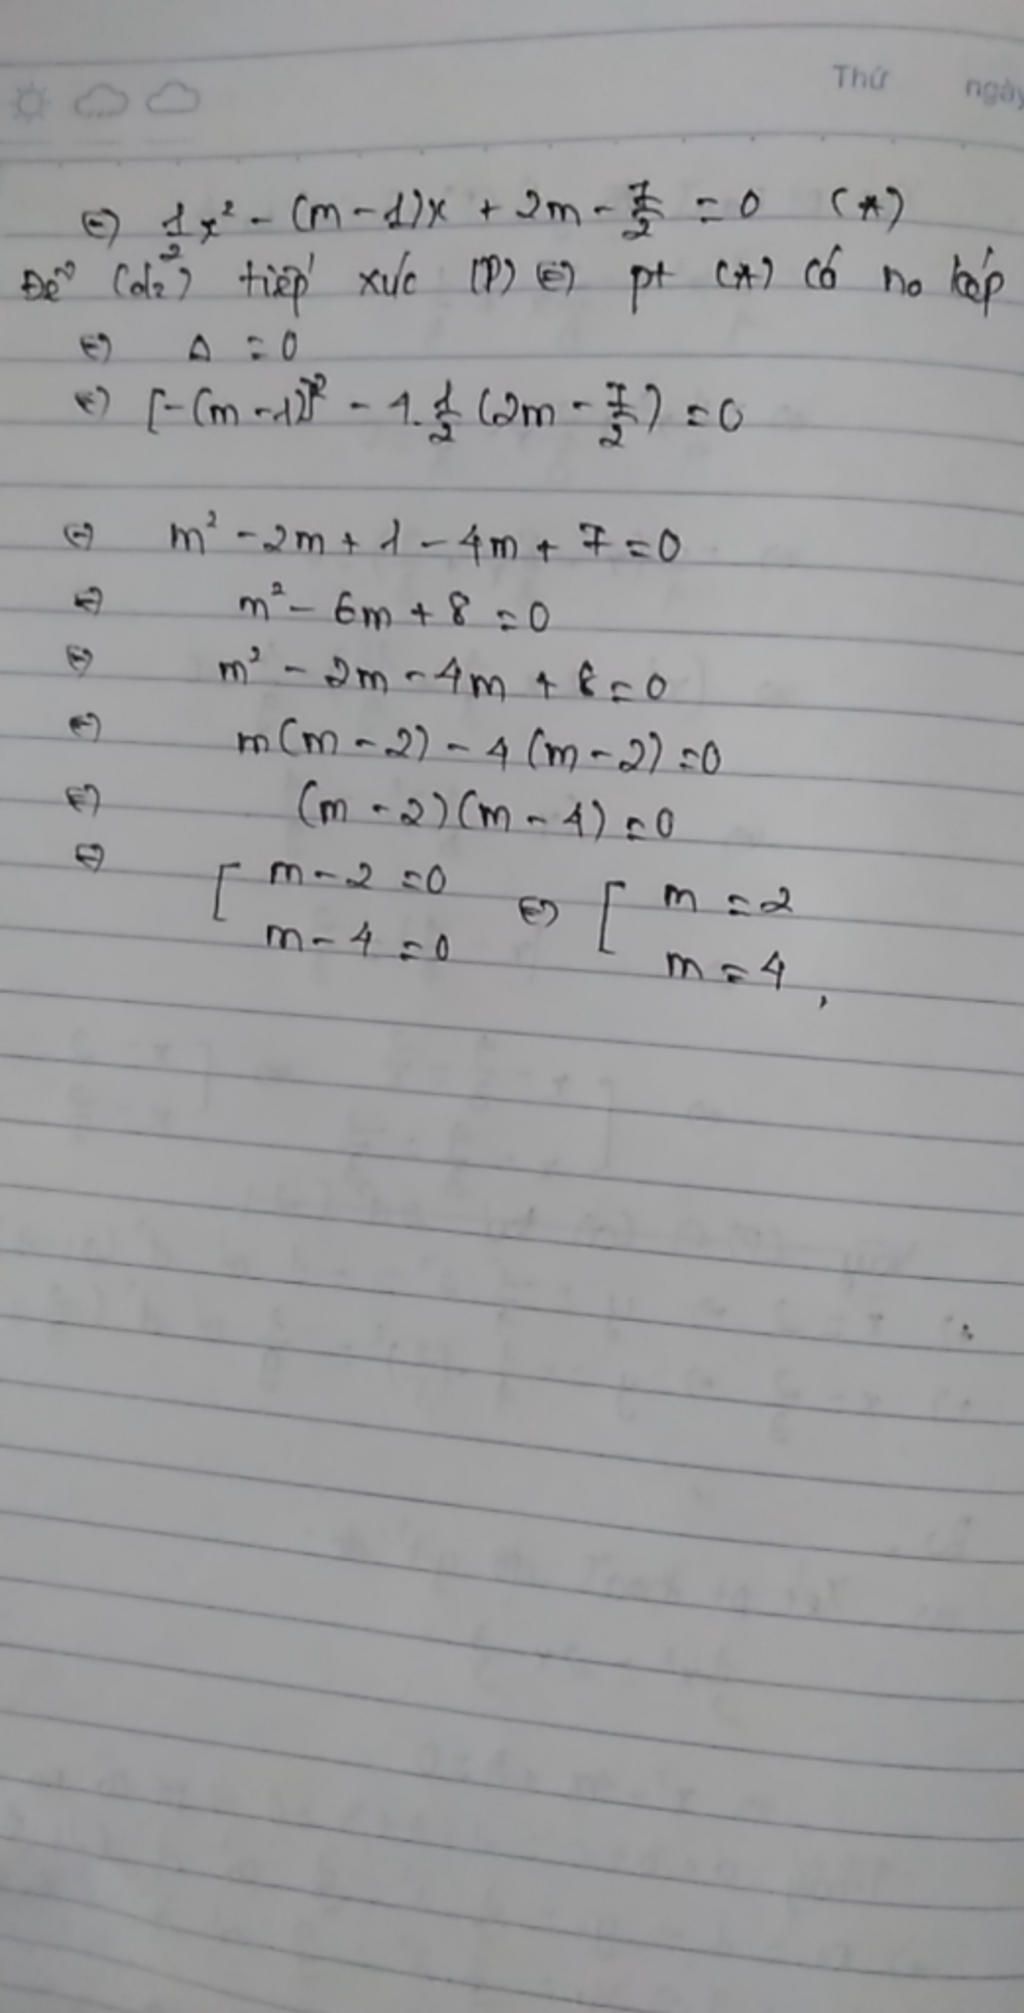 Thứ ngày
⇔ 1/2 x² - (m - 1)x + 2m - 7/2 = 0 (*)
Để (d₂) tiếp xúc (P) ⇔ pt (*) có no kép
⇔ Δ = 0
⇔ [-(m - 1)]² - 4. 1/2 (2m - 7/2) = 0
⇔ m² - 2m + 1 - 4m + 7 = 0
⇔ m² - 6m + 8 = 0
⇔ m² - 2m - 4m + 8 = 0
⇔ m(m - 2) - 4(m - 2) = 0
⇔ (m - 2)(m - 4) = 0
⇔ [ m - 2 = 0 ⇔ [ m = 2
m - 4 = 0 m = 4,